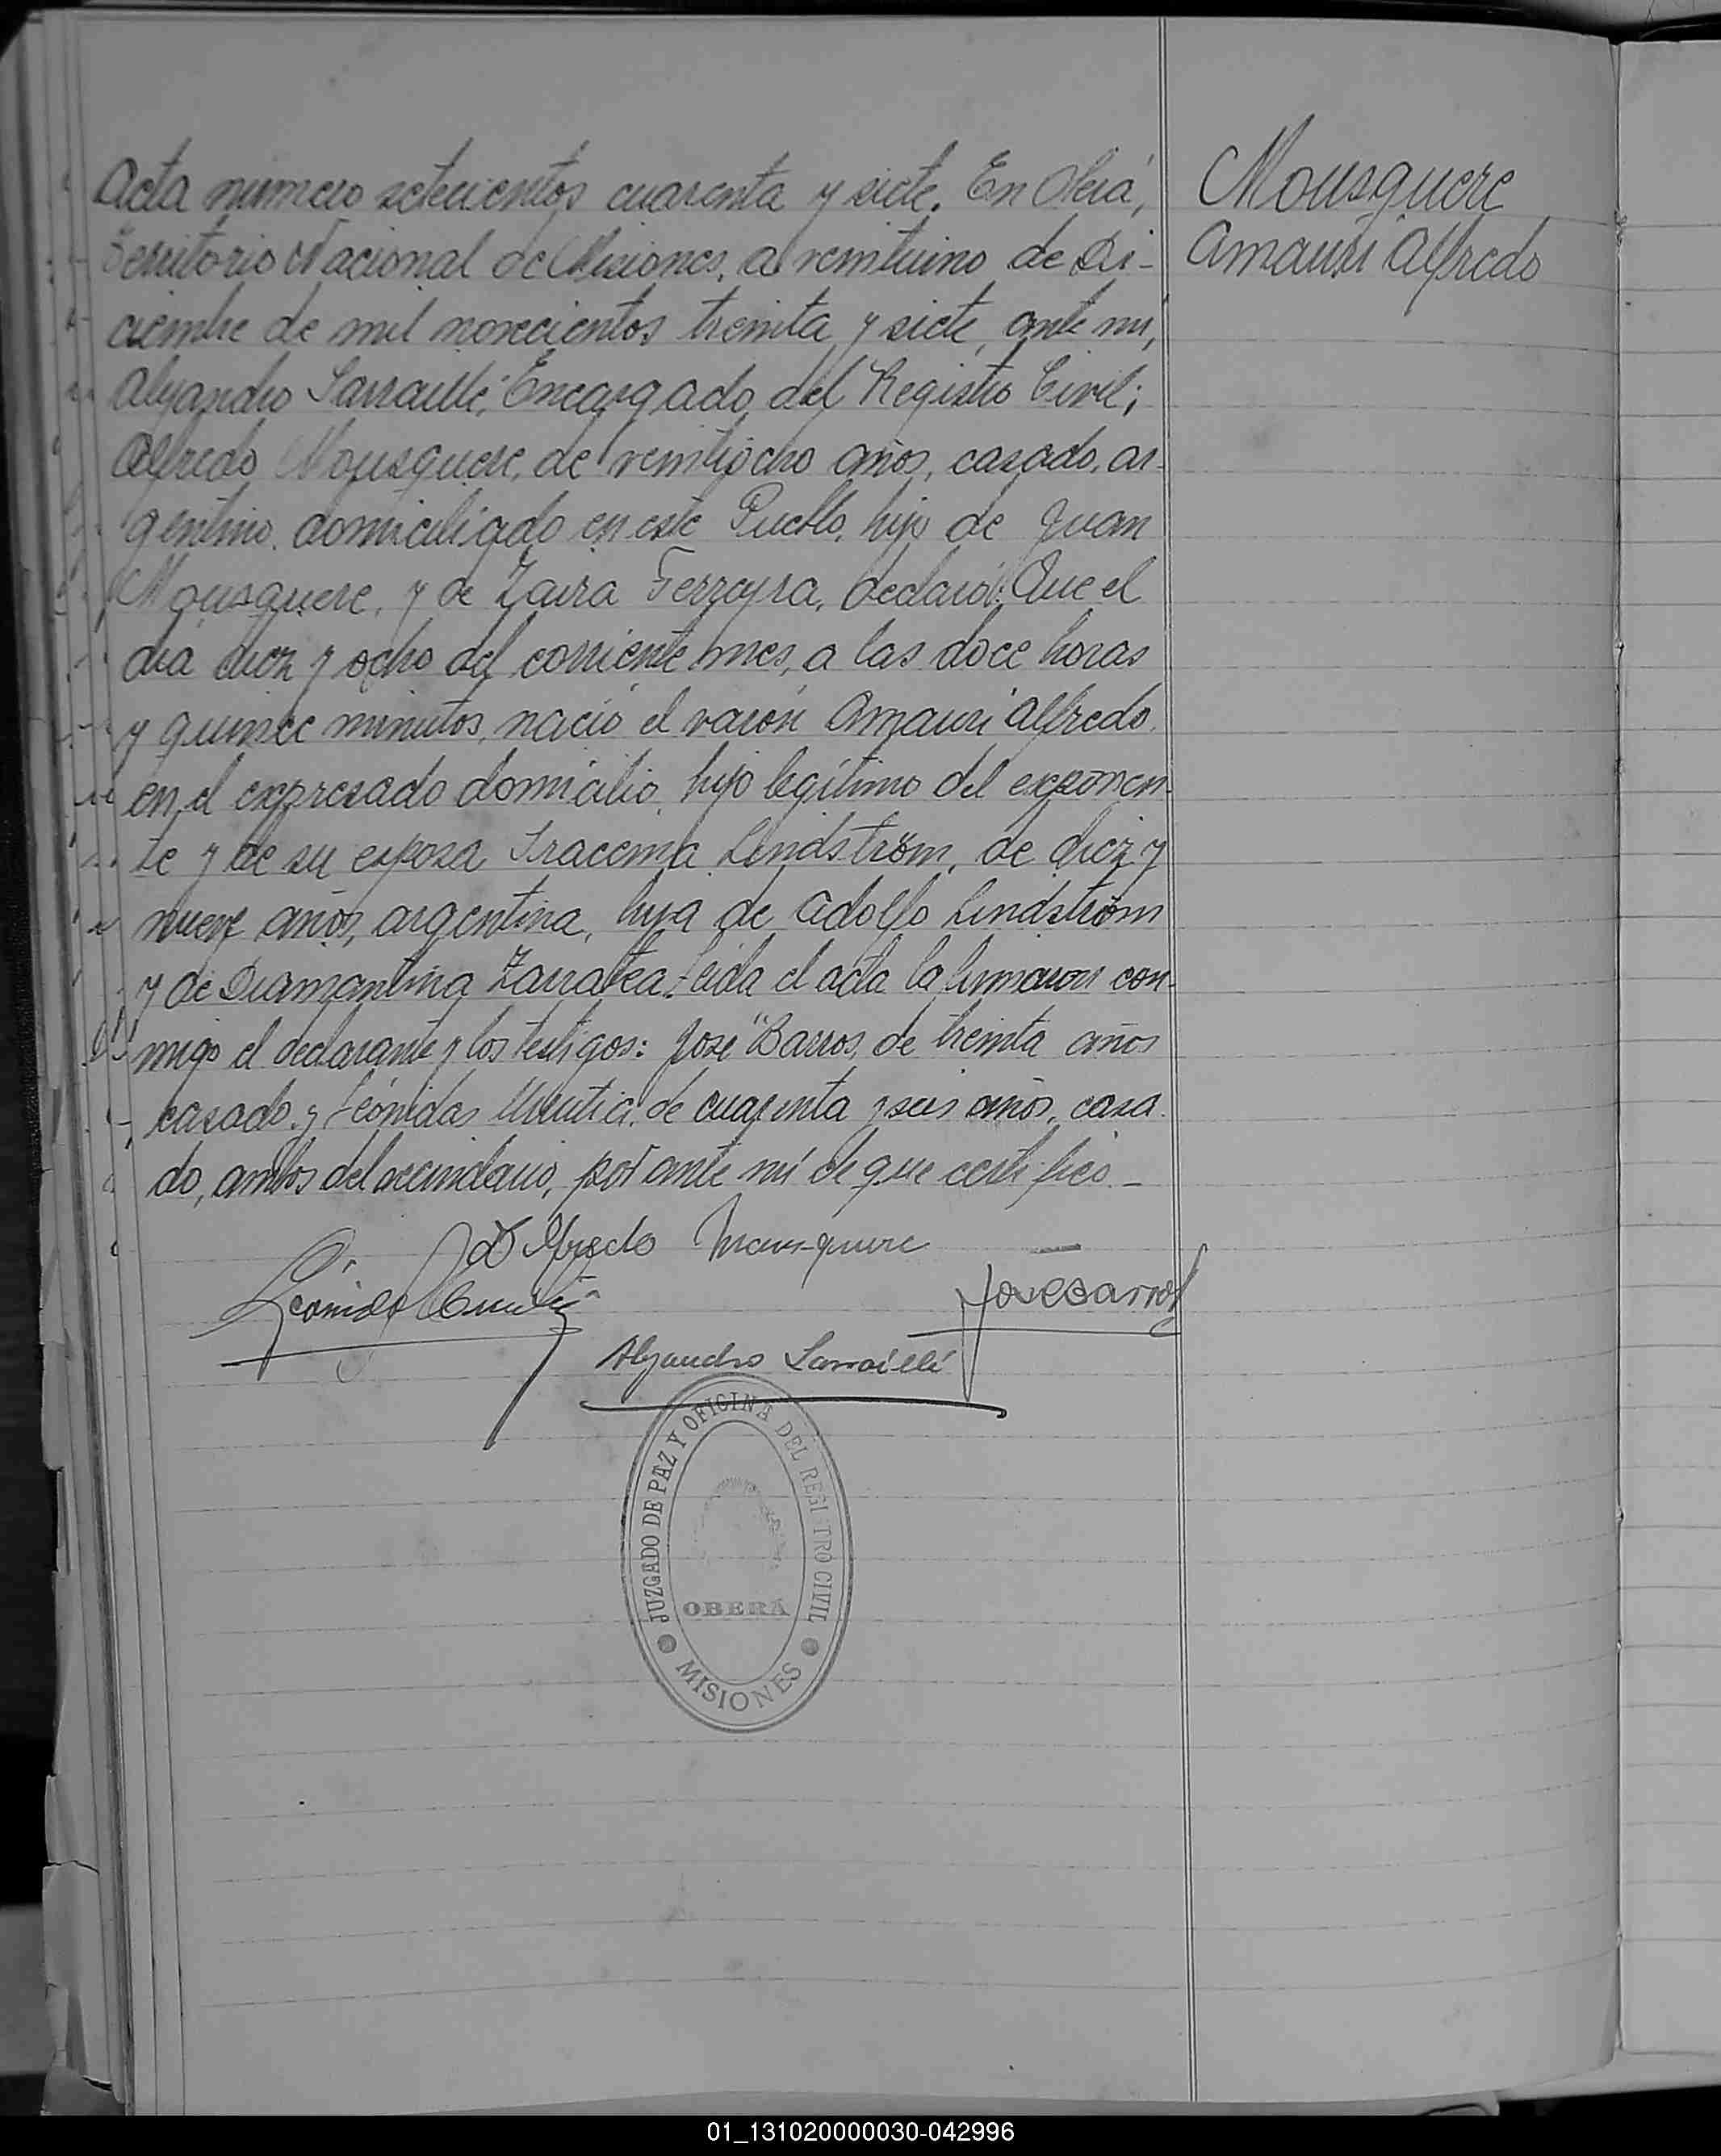 Acta número setecientos cuarenta y siete. En Oberá,
Territorio Nacional de Misiones, a veintiuno de Di-
ciembre de mil novecientos treinta y siete, ante mí,
Alejandro Sarraillé, Encargado del Registro Civil;
Alfredo Mousquere, de veintiocho años, casado, ar-
gentino, domiciliado en este Pueblo, hijo de Juan
Mousquere, y de Zaira Ferreyra, declaró: Que el
día diez y ocho del corriente mes, a las doce horas
y quince minutos, nació el varón Amauri Alfredo
en el expresado domicilio, hijo legítimo del exponen-
te y de su esposa Iracema Lindström, de diez y
nueve años, argentina, hija de Adolfo Lindström
y de Diamantina Zarratea. Leída el acta la firmaron con-
migo el declarante y los testigos: José Barros, de treinta años
casado y Leónidas de cuarenta y seis años, casa-
do, ambos del vecindario, por ante mí de que certifico.-
Mousquere
Amauri Alfredo
Alfredo Mousquere
Leonidas
José Barros
Alejandro Sarraillé
JUZGADO DE PAZ Y OFICINA DEL REGISTRO CIVIL
OBERÁ
MISIONES
01_131020000030-042996